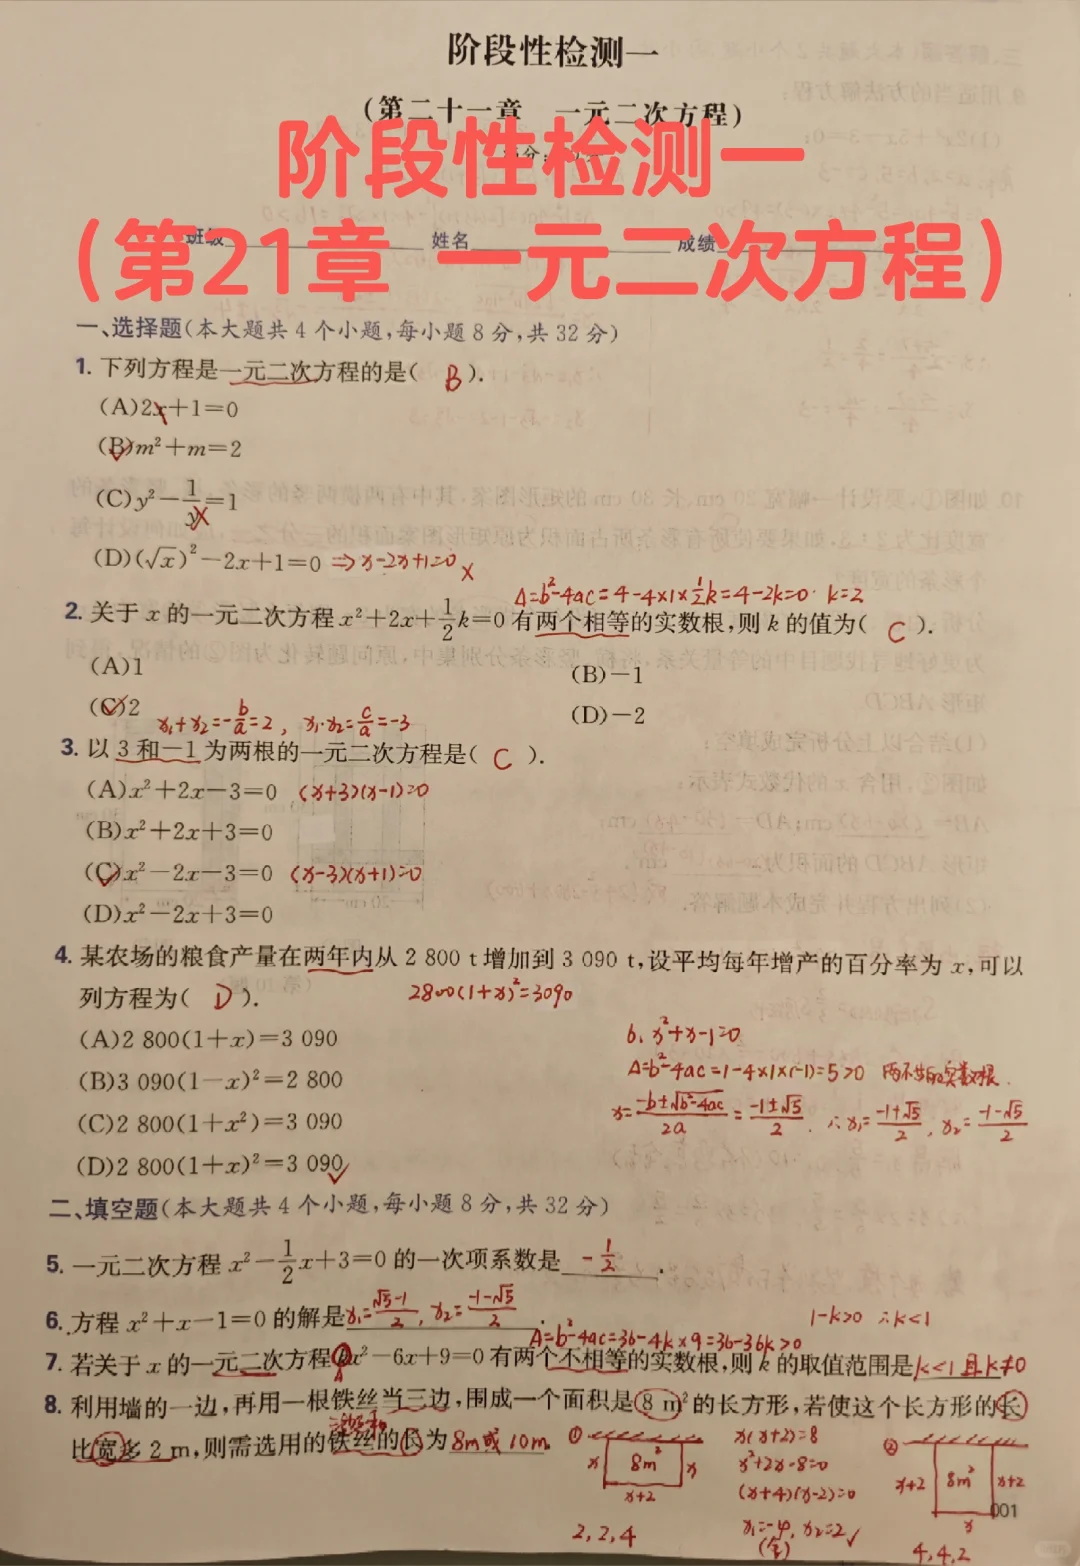 阶段性检测一
(第二十一章 一元二次方程)
阶段性检测一
(第21章 一元二次方程)
班级 姓名 成绩
一、选择题(本大题共4个小题,每小题8分,共32分)
1. 下列方程是一元二次方程的是( B ).
(A)2x+1=0
(B)m²+m=2
(C)y²-1/y=1
(D)(√x)²-2x+1=0 ⇒x-2x+1=0 ×
Δ=b²-4ac=4-4×1×1/2k=4-2k=0 k=2
2. 关于x的一元二次方程x²+2x+1/2k=0有两个相等的实数根,则k的值为( C ).
(A)1 (B)-1
(C)2 (D)-2
x₁+x₂=-b/a=2, x₁·x₂=c/a=-3
3. 以3和-1为两根的一元二次方程是( C ).
(A)x²+2x-3=0 (x+3)(x-1)=0
(B)x²+2x+3=0
(C)x²-2x-3=0 (x-3)(x+1)=0
(D)x²-2x+3=0
4. 某农场的粮食产量在两年内从2 800 t增加到3 090 t,设平均每年增产的百分率为x,可以
列方程为( D ). 2800(1+x)²=3090
(A)2 800(1+x)=3 090
(B)3 090(1-x)²=2 800
(C)2 800(1+x²)=3 090
(D)2 800(1+x)²=3 090
6、x²+x-1=0
Δ=b²-4ac=1-4×1×(-1)=5>0 两不等的实数根.
x=-b±√b²-4ac/2a=-1±√5/2. ∴x₁=-1+√5/2, x₂=-1-√5/2
二、填空题(本大题共4个小题,每小题8分,共32分)
5. 一元二次方程x²-1/2x+3=0的一次项系数是 -1/2 .
6. 方程x²+x-1=0的解是x₁=√5-1/2, x₂=-1-√5/2 .
Δ=b²-4ac=36-4k×9=36-36k>0
1-k>0 ∴k<1
7. 若关于x的一元二次方程kx²-6x+9=0有两个不相等的实数根,则k的取值范围是k<1且k≠0
8. 利用墙的一边,再用一根铁丝当三边,围成一个面积是8 m²的长方形,若使这个长方形的长
比宽多2 m,则需选用的铁丝的长为8m或10m.
三边和
① x 8m² x x+2
x(x+2)=8
x²+2x-8=0
(x+4)(x-2)=0
x₁=-4, x₂=2✓
(舍)
2,2,4
② x+2 8m² x+2 x
4,4,2
001